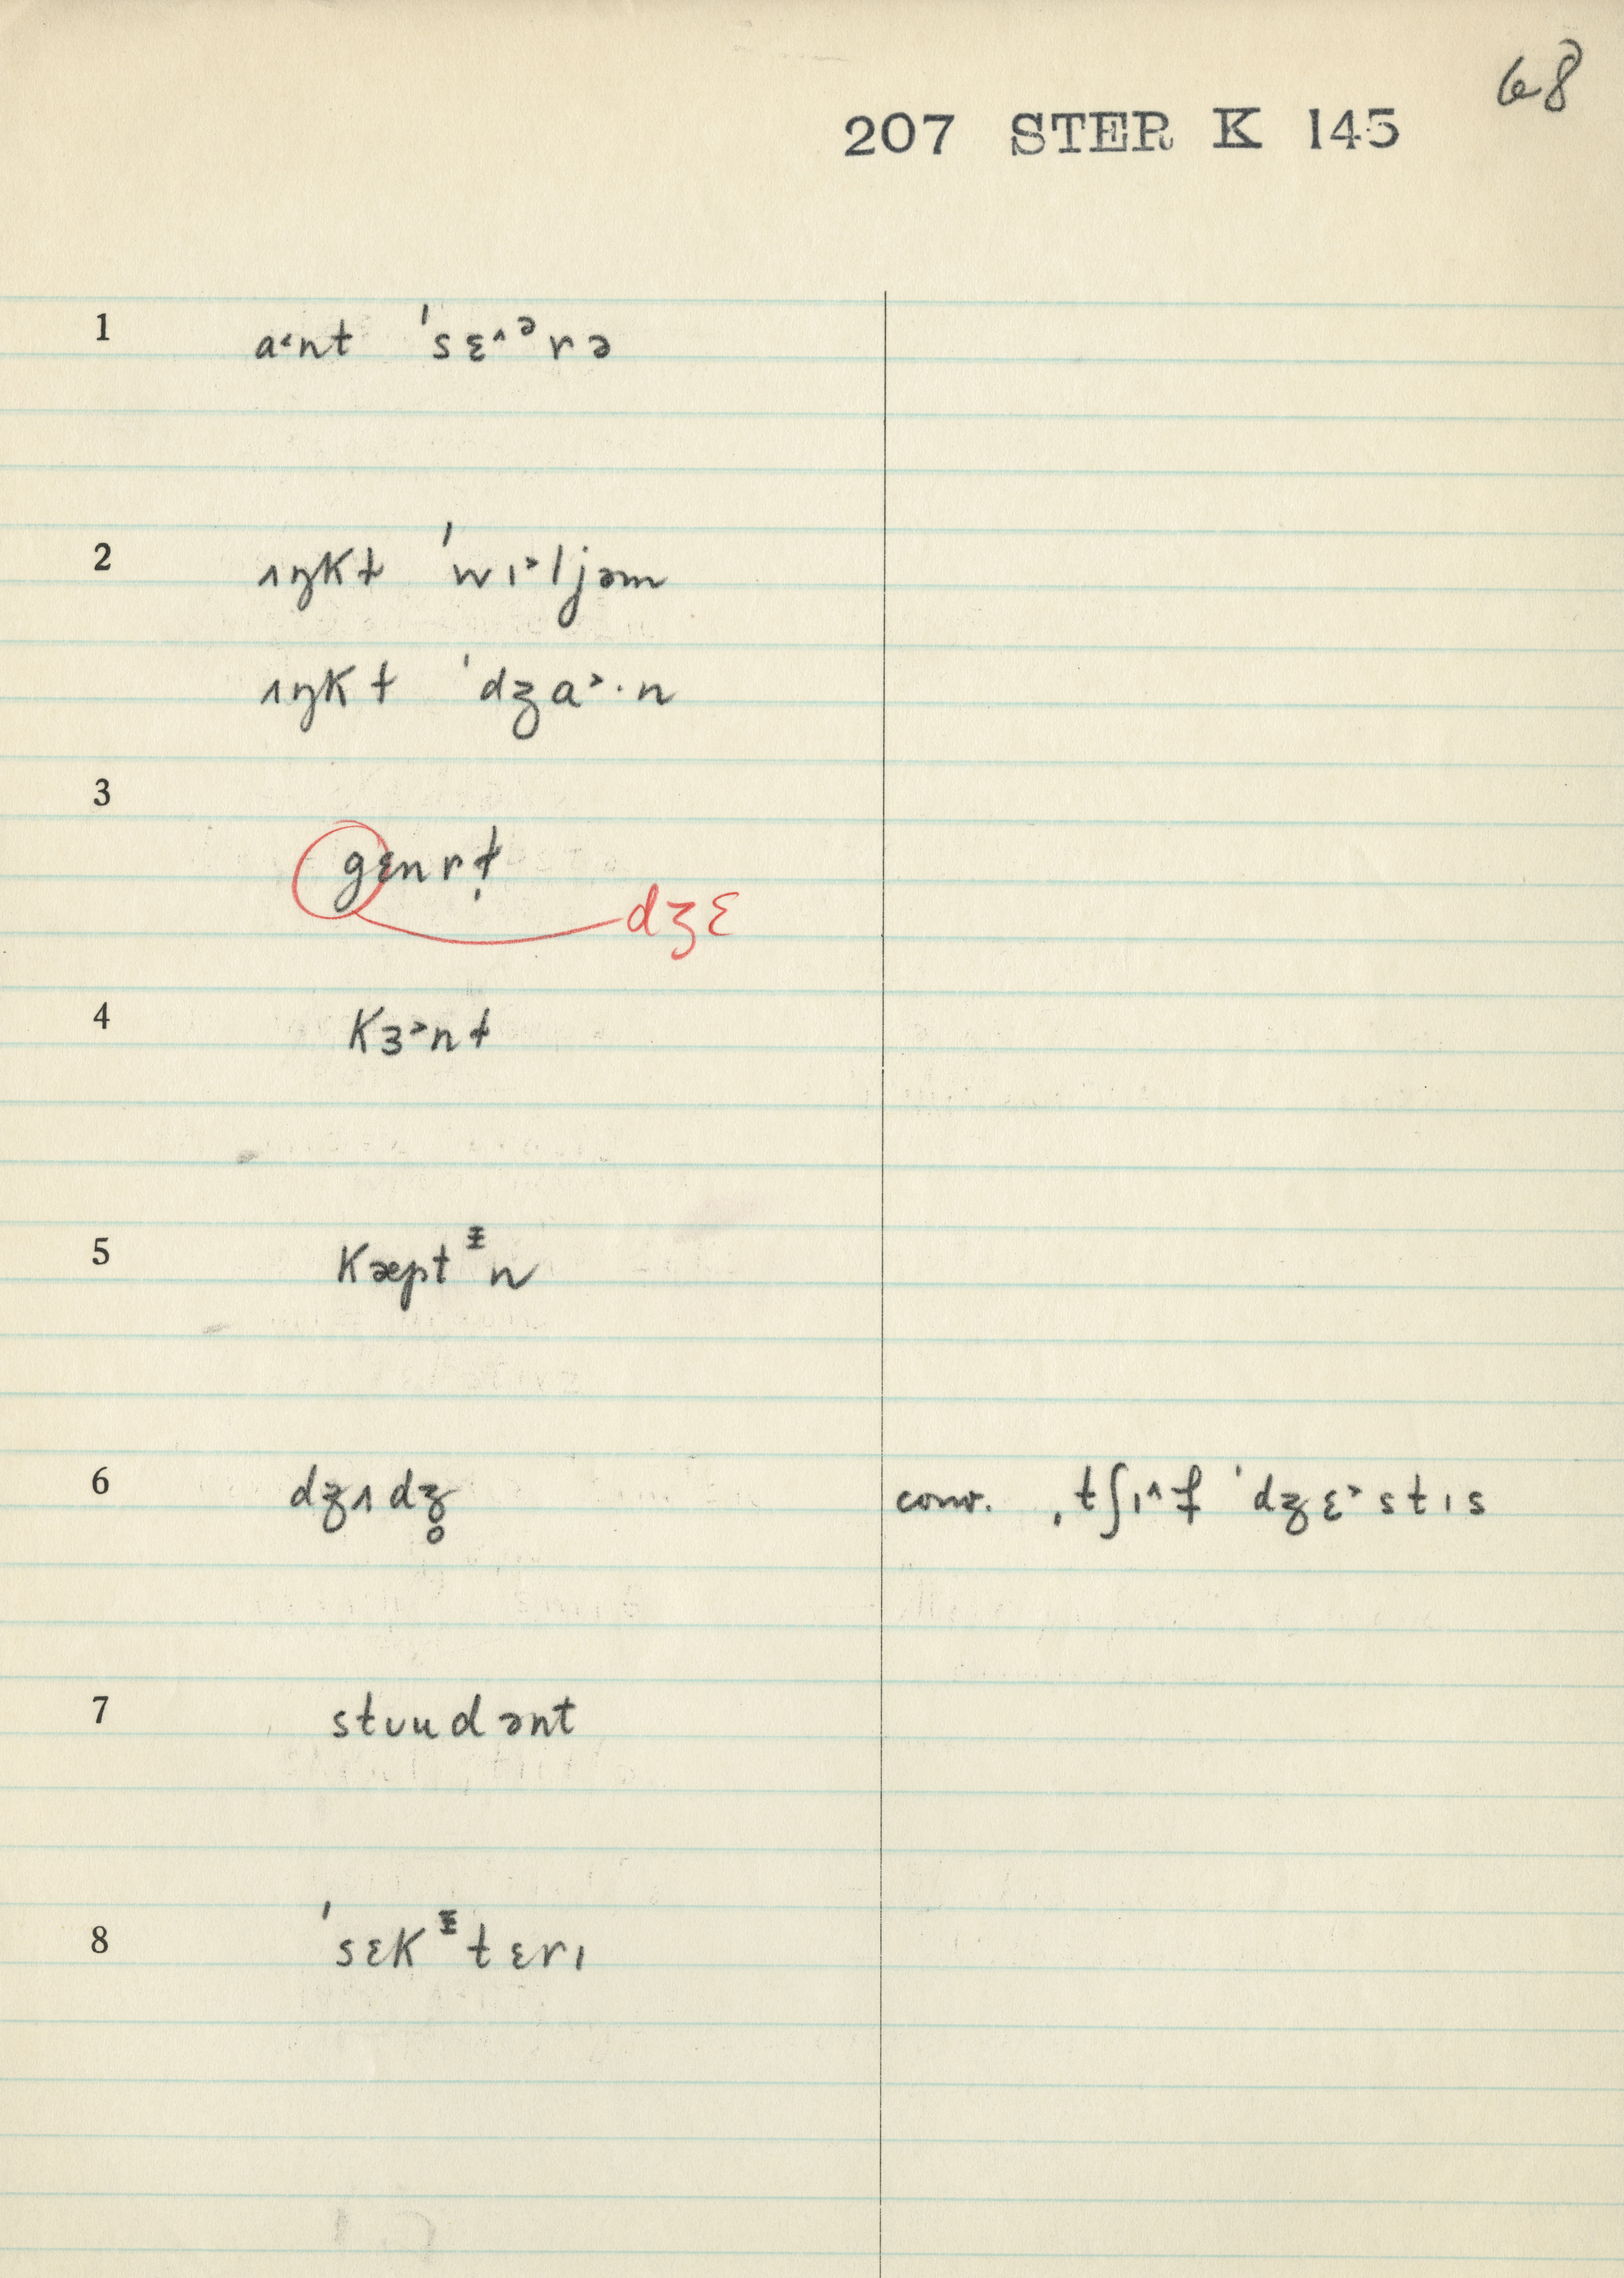 68
207 STER K 145
1 a˂nt ˈsɛ^ᵊrə
2 ʌŋkɫ ˈwɪ˃ljəm
ʌŋkɫ ˈdʒa˃·n
3 gɛnrɫ̩
dʒɛ
4 kɜ˃nɫ
5 kæptᵻn
6 dʒʌdʒ̥ conv. ˌtʃɪ^f ˈdʒɛ˃stɪs
7 stᴜudənt
8 ˈsɛkᵻtɛrɪ